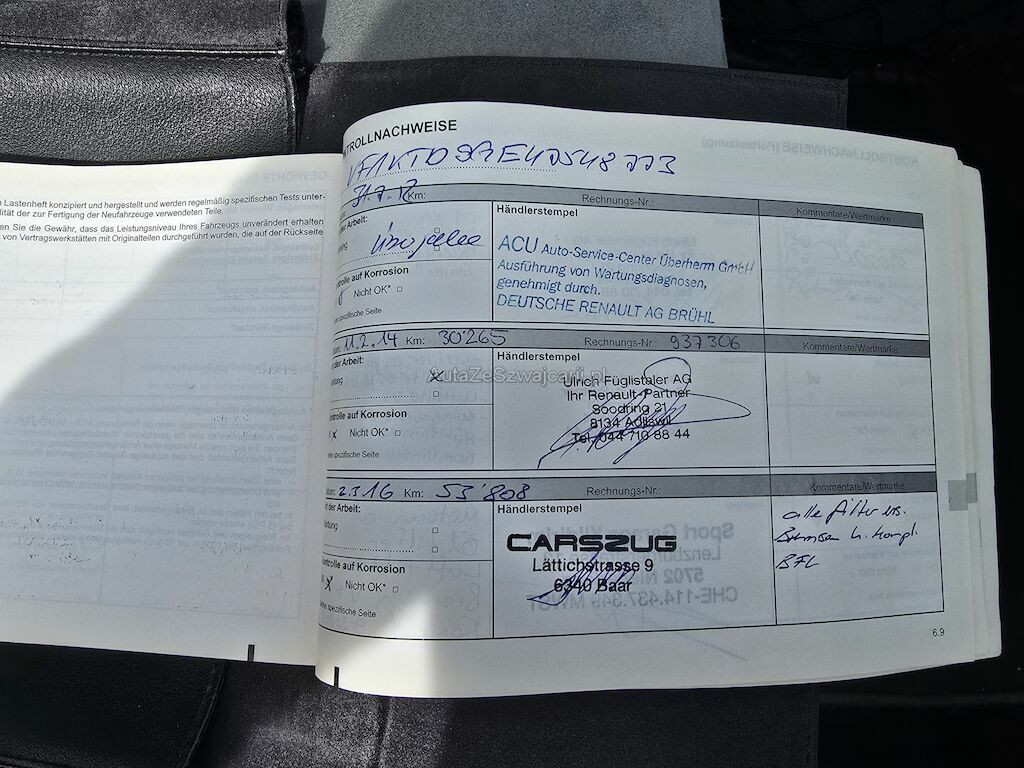 n Lastenheft konzipiert und hergestellt und werden regelmäßig spezifischen Tests unter-
lität der zur Fertigung der Neufahrzeuge verwendeten Teile.
en Sie die Gewähr, dass das Leistungsniveau Ihres Fahrzeugs unverändert erhalten
von Vertragswerkstätten mit Originalteilen durchgeführt wurden, die auf der Rückseite
NTROLLNACHWEISE
31.7.12 Km: Rechnungs-Nr.:
der Arbeit: Händlerstempel Kommentare/Wertmarke
tung
ACU Auto-Service-Center Überherrn GmbH
Ausführung von Wartungsdiagnosen,
genehmigt durch.
DEUTSCHE RENAULT AG BRÜHL
trolle auf Korrosion
Nicht OK*
ne spezifische Seite
11.2.14 Km: 30'265 Rechnungs-Nr.: 937306
der Arbeit: Händlerstempel Kommentare/Wertmarke
tung x
AutaZeSzwajcarii.pl
Ulrich Füglistaler AG
Ihr Renault-Partner
Soodring 21
8134 Adliswil
Tel. 044 710 88 44
ntrolle auf Korrosion
x Nicht OK*
ne spezifische Seite
tum: 2.3.16 Km: 53'808 Rechnungs-Nr.:
t der Arbeit: Händlerstempel Kommentare/Wertmarke
artung
CARSZUG
Lättichstrasse 9
6340 Baar
alle Filter ers.
Bremsen h. kompl.
BFL
ontrolle auf Korrosion
x Nicht OK*
eine spezifische Seite
6.9